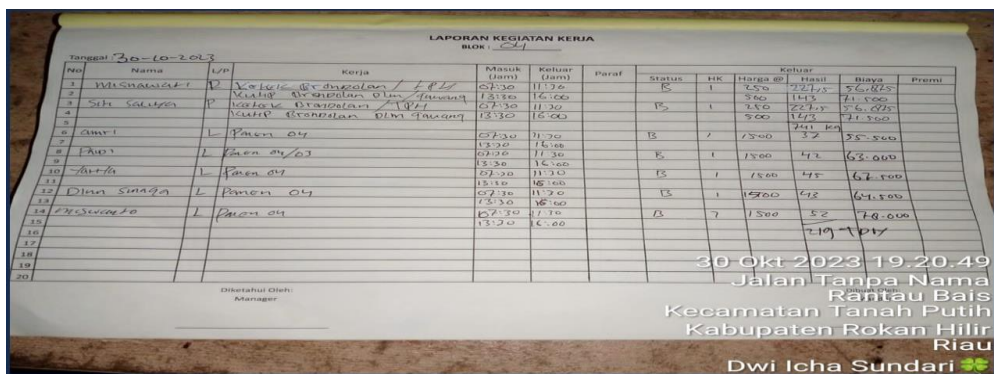 LAPORAN KEGIATAN KERJA
BLOK : 04
Tanggal : 30-10-2023
No Nama L/P Kerja Masuk (Jam) Keluar (Jam) Paraf Keluar
Status HK Harga @ Hasil Biaya Premi
1 P Brondolan / TPH 07:30 11:30 B 1 250 227,5 56.875
2 Kutip Brondolan Dlm Gawang 13:30 16:00 500 143 71.500
3 P Brondolan / TPH 07:30 11:30 B 1 250 227,5 56.875
4 Kutip Brondolan Dlm Gawang 13:30 16:00 500 143 71.500
5 741 Kg
6 Amri L Panen 04 07:30 11:30 B 1 1500 37 55.500
7 13:30 16:00
8 L Panen 04/03 07:30 11:30 B 1 1500 42 63.000
9 13:30 16:00
10 L Panen 04 07:30 11:30 B 1 1500 45 67.500
11 13:30 16:00
12 Dina Sinaga L Panen 04 07:30 11:30 B 1 1500 43 64.500
13 13:30 16:00
14 L Panen 04 07:30 11:30 B 1500 52 78.000
15 13:30 16:00
16 219
17
18
19
20
Diketahui Oleh:
Manager
Dibuat Oleh:
30 Okt 2023 19.20.49
Jalan Tanpa Nama
Rantau Bais
Kecamatan Tanah Putih
Kabupaten Rokan Hilir
Riau
Dwi Icha Sundari 🍀